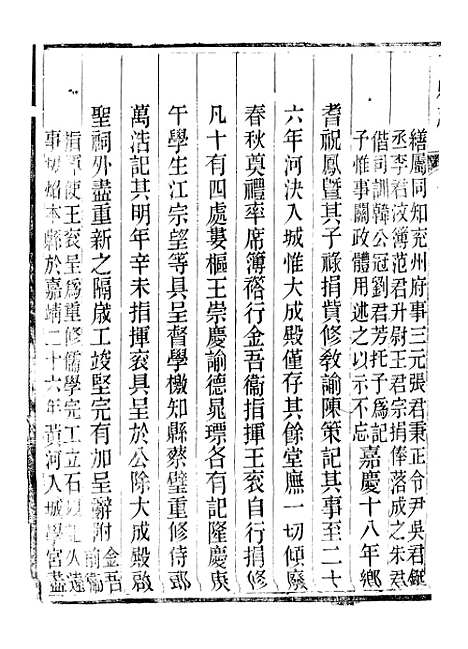 繕屬同知兗州府事三元張君秉正令尹吳君
丞李君汶簿范君升尉王君宗捐俸落成之朱君
偕司訓韓公冠劉君芳托子為記
予惟事關政體用述之以示不忘
嘉慶十八年鄉
耆祝鳳暨其子祿捐貲修敎諭陳策記其事至二十
六年河決入城惟大成殿僅存其餘堂廡一切傾廢
春秋奠禮率席簿褡行金吾衞指揮王袞自行捐修
凡十有四處婁樞王崇慶諭德晁瑮各有記隆慶庚
午學生江宗望等具呈督學檄知縣蔡璧重修侍郎
萬浩記其明年辛未指揮袞具呈於公除大成殿啟
聖祠外盡重新之隔歲工竣堅完有加無辭附
金吾
前衞
指揮使王袞呈為重修儒學完工立石以記久遠
事切 本縣於嘉靖二十六年黃河入城學宮盡